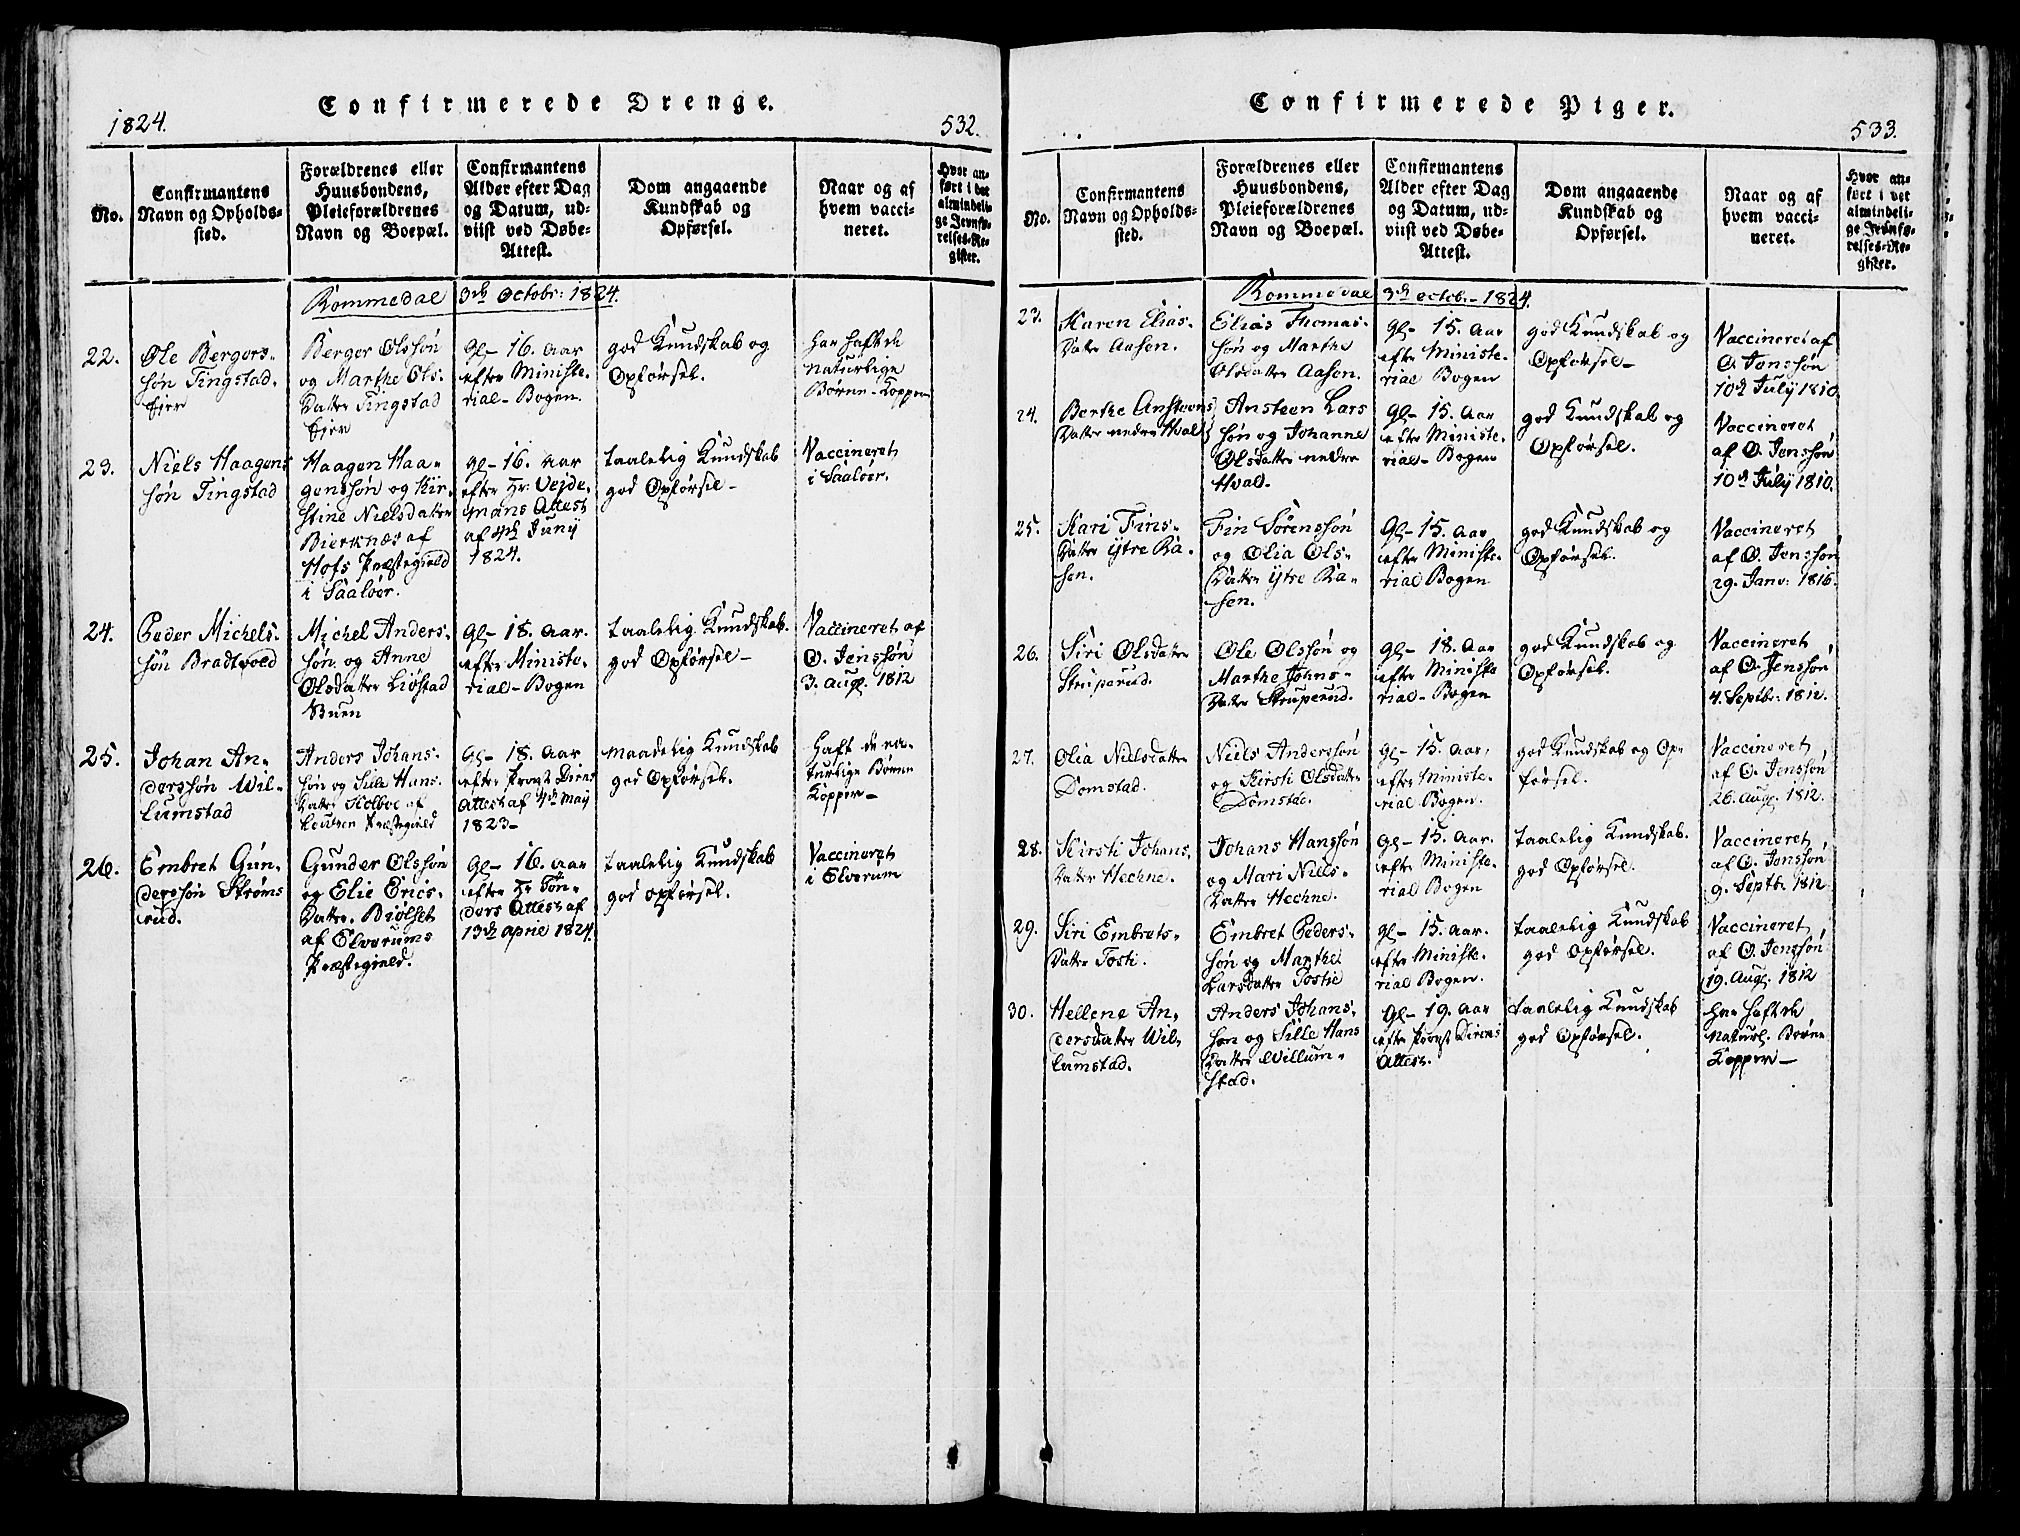 Confirmerede Drenge.
1824.
532.
No.
Confirmantens
Navn og Opholds-
sted.
Forældrenes eller
Huusbondens,
Pleieforældrenes
Navn og Boepæl.
Confirmantens
Alder efter Dag
og Datum, ud-
viist ved Døbe-
Attest.
Dom angaaende
Kundskab og
Opførsel.
Naar og af
hvem vacci-
neret.
Hvor an-
ført i det
almindeli-
ge Jevnfø-
relses-Re-
gister.
Rommedal 3die Octobr: 1824.
22.
Ole Bergers-
søn Tingstad.
Eier
Berger Olssøn
og Marthe Ols-
Datter Tingstad
Eier
Gl- 16. Aar
efter Ministe-
rial- Bogen.
god Kundskab og
Opførsel.
Har haft de
naturlige
Børne-Kopper
23.
Niels Haagens
søn Tingstad
Haagen Haa-
genssøn og Kir-
stine Nielsdatter
Bierknæs af
Hofs Præstegield
i Saaloer.
Gl- 16. Aar
efter Hr: Vejde-
mans Attest
af 4de Junÿ
1824.
taalelig Kundskab
god Opførsel-
Vaccineret
i Saaloer.
24.
Peder Michels-
søn Bradtvold
Michel Anders-
søn og Anne
Olsdatter Liøstad
Buen
Gl- 18. Aar.
efter Ministe-
rial- Bogen
taalelig Kundskab.
god Opførsel-
Vaccineret af
O. Jenssøn
3. Aug. 1812
25.
Johan An-
derssøn Wil-
lumstad
Anders Johans-
søn og Sille Hans-
Datter Kolboe af
Leuten Præstegield
Gl- 18. Aar
efter Provst Dirns
Attest af 4de May
1823-
maadelig Kundskab
god Opførsel.
Haft de na-
turlige Børne
Kopper-
26.
Embret Gün-
derssøn Strøms
rud.
Gunder Olssøn
og Elie Erics-
Datter. Biølset
af Elverums
Præstegield.
Gl- 16. Aar
efter Hr Tøn-
ders Attest af
13de April 1824.
taalelig Kundskab
god Opførsel.
Vaccineret
i Elverum
Confirmerede Piger.
533.
No.
Confirmantens
Navn og Opholds-
sted.
Forældrenes eller
Huusbondens,
Pleieforældrenes
Navn og Boepæl.
Confirmantens
Alder efter Dag
og Datum, ud-
viist ved Døbe-
Attest.
Dom angaaende
Kundskab og
Opførsel.
Naar og af
hvem vacci-
neret.
Hvor an-
ført i det
almindeli-
ge Jevnfø-
relses-Re-
gister.
Rommedal 3de octob.- 1824.
23.
Karen Elias-
Datter Aasen.
Elias Thomas-
søn og Marthe
Olsdatter Aasen.
Gl- 15. Aar
efter Ministe-
rial Bogen
god Kundskab og
Opførsel-
Vaccineret af
O. Jenssøn
10de July 1810.
24.
Berthe Ansteens
Datter nedre Hval
Ansteen Lars
søn og Johanne
Olsdatter nedre
Hval.
Gl- 15. Aar
efter Ministe-
rial- Bogen
god Kundskab og
Opførsel.
Vaccineret
af O. Jenssøn
10de July 1810.
25.
Kari Fins-
Datter ÿtre Ra-
sen.
Fin Sörenssøn
og Olia Ols-
Datter ÿtre Ra-
sen.
Gl- 15. Aar
efter Ministe-
rial Bogen
god Kundskab og
Opførsel.
Vaccineret
af O. Jenssøn
29. Janv: 1816.
26.
Siri Olsdatter
Struperud.
Ole Olssøn og
Marthe Johns-
Datter Struperud.
Gl- 18. Aar
efter Ministe
rial- Bogen
god Kundskab og
Opførsel.
Vaccineret
af O. Jenssøn
4. Septbr: 1812.
27.
Olia Nielsdatter
Domstad.
Niels Anderssøn
og Kirsti Olsdatter
Domstad.
Gl- 15. Aar,
efter Ministe-
rial Bogen.
god Kundskab og Op-
førsel.
Vaccineret
af O. Jenssøn
26. Aug. 1812.
28.
Kirsti Johans-
Datter Hechne.
Johans Hanssøn
og Mari Niels-
Datter Hechne.
Gl- 15. Aar.
efter Ministe-
rial Bogen
taalelig Kundskab.
god Opførsel.
Vaccineret
af O. Jenssøn
9. Septb. 1812
29.
Siri Embrets-
Datter Tosti.
Embret Peders-
søn og Marthe
Larsdatter Tostie
gl- 15. Aar.
efter Ministe-
rial Bogen.
taalelig Kundskab
god Opførsel.
Vaccineret
af O. Jenssøn
19. Aug. 1812
30.
Hellene An-
dersdatter Wil-
lumstad.
Anders Johans-
søn og Sille Hans
Datter Willum-
stad.
Gl- 19. Aar
efter Provst Direns
Attest.
taalelig Kundskab
god Opførsel.
Har haft de
Naturl. Børne
Kopper-